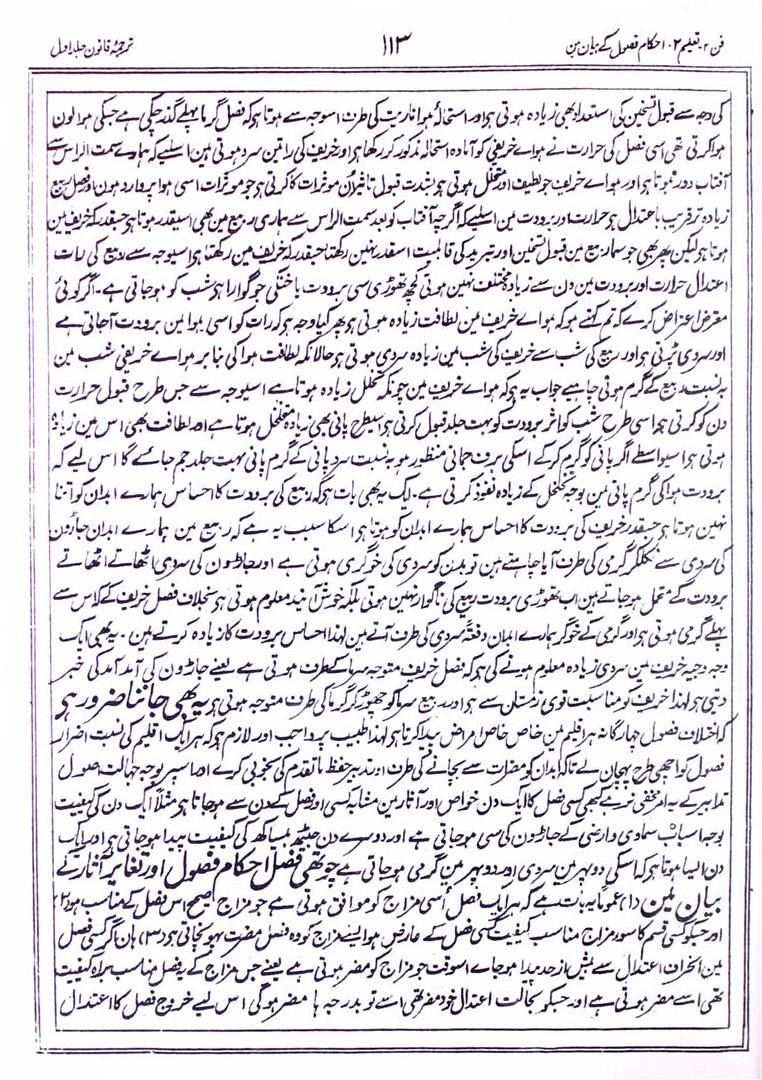 فن ۲- تعلیم ۲-۱۰ احکام فصول کے بیان مین ۱۱۳ ترجمۂ قانون جلد اول
کی وجہ سے قبول تسخین کی استعداد بھی زیادہ ہوتی ہی اور استحالۂ ہوا ناریت کی طرف اسوجہ سے ہوتا ہو کہ فصل گرما پہلے گذر چکی ہے جسکی ہوا لون
ہوا کرتی تھی اسی فصل کی حرارت نے ہواے خریفی کو آمادہ استحالہ مذکور کر رکھا ہو اور خریف کی راتین سرد ہوتی ہین اسلیے کہ ہمارے سمت الراس سے
آفتاب دور ہوتا ہو اور ہواے خریف جو لطیف اور متخلخل ہوتی ہو بشدت قبول تاثیر ان موثرات کا کرتی ہو جو موثرات اسی ہوا پر وارد ہون اور فصل ربیع
زیادہ تر قریب باعتدال ہو حرارت اور برودت مین اسلیے کہ اگرچہ آفتاب کو بعد سمت الراس سے ہماری ربیع مین بھی اسیقدر ہوتا ہو جسقدر کہ خریف مین
ہوتا ہو لیکن پھر بھی جو سمار بیع مین قبول تسخین اور تبرید کی قابلیت اسقدر نہین رکھتا جسقدر کہ خریف مین رکھتا ہو اسیوجہ سے ربیع کی رات
اعتدال حرارت اور برودت مین دن سے زیادہ مختلف نہین ہوتی کچھ تھوڑی سی برودت یا خنکی جو گوارا ہو شب کو ہو جاتی ہے۔ اگر کوئی
معترض اعتراض کرے کہ تم کہتے ہو کہ ہواے خریف مین لطافت زیادہ ہوتی ہو پھر کیا وجہ ہو کہ رات کو اسی ہوا مین برودت آجاتی ہے
اور سردی پڑتی ہو اور ربیع کی شب سے خریف کی شب مین زیادہ سردی ہوتی ہو حالانکہ لطافت ہوا کی بنا پر ہواے خریفی شب مین
بہ نسبت ربیع کے گرم ہونی چاہیے جواب یہ ہو کہ ہواے خریف مین چونکہ تخلخل زیادہ ہوتا ہے اسیوجہ سے جس طرح قبول حرارت
دن کو کرتی ہو اسی طرح شب کو اثر برودت کو بہت جلد قبول کرتی ہو سطح پانی بھی زیادہ متخلخل ہوتا ہے اور لطافت بھی اس مین زیادہ
ہوتی ہو اسیواسطے اگر پانی کو گرم کرکے اسکی برف جمانی منظور ہو بہ نسبت سرد پانی کے گرم پانی بہت جلد جم جائے گا اس لیے کہ
برودت ہوا کی گرم پانی مین بوجہ تخلخل کے زیادہ نفوذ کرتی ہے۔ ایک یہ بھی بات ہو کہ ربیع کی برودت کا احساس ہمارے ابدان کو اتنا
نہین ہوتا ہو جسقدر خریف کی برودت کا احساس ہمارے ابدان کو ہوتا ہو اسکا سبب یہ ہے کہ ربیع مین ہمارے ابدان جاڑون
کی سردی سے نکلکر گرمی کی طرف آیا چاہتے ہین تو بدن کو سردی کی خوگری ہوتی ہے اور جاڑون کی سردی اٹھاتے اٹھاتے
برودت کے متحمل ہو جاتے ہین اب تھوڑی برودت ربیع کی ناگوار نہین ہوتی بلکہ خوش آیند معلوم ہوتی ہو بخلاف فصل خریف کے کہ اس سے
پہلے گرمی ہوتی ہو اور گرمی کے خوگر ہمارے ابدان دفعۃً سردی کی طرف آتے ہین لہذا احساس برودت کا زیادہ کرتے ہین۔ یہ بھی ایک
وجہ وجیہ خریف مین سردی زیادہ معلوم ہونے کی ہو کہ فصل خریف متوجہ سرما کے طرف ہوتی ہے یعنے جاڑون کی آمد آمد کی خبر
دیتی ہو لہذا خریف کو مناسبت قوی زمستان سے ہو اور ربیع سرما کو چھوڑ کر گرما کی طرف متوجہ ہوتی ہو یہ بھی جاننا ضرور ہی
کہ اختلاف فصول چہارگانہ ہر اقلیم مین خاص خاص امراض پیدا کرتا ہو لہذا طبیب پر واجب اور لازم ہو کہ ہر ایک اقلیم کی نسبت اضرار
فصول کو اچھی طرح پہچان لے تاکہ ابدان کو مضرات سے بچانے کی طرف اور تدبیر حفظ ما تقدم کی بخوبی کرے اور اسپر بوجہ جہالت اصول
تدابیر کے یہ امر مخفی نرہے کبھی کسی فصل کا ایک دن خواص اور آثار مین مشابہ کسی اور فصل کے دن سے ہو جاتا ہو مثلاً ایک دن کی کیفیت
بوجہ اسباب سماوی و ارضی کے جاڑون کی سی ہو جاتی ہے اور دوسرے دن جیٹھ بیساکھ کی کیفیت پیدا ہو جاتی ہو اور ایک
دن ایسا ہوتا ہو کہ اسکی دوپہر مین سردی اور دوپہر مین گرمی ہو جاتی ہے چوتھی فصل احکام فصول اور تغایر آثار کے
بیان مین (۱) عموماً یہ بات ہے کہ ہر ایک فصل اُسی مزاج کو موافق ہوتی ہے جو مزاج صحیح اس فصل کے مناسب ہو (۲)
اور جبکو کسی قسم کا سوء مزاج مناسب کیفیت کسی فصل کے عارض ہو ایسے مزاج کو وہ فصل مضرت پہونچاتی ہو (۳) ہان اگر کسی فصل
مین انحراف اعتدال سے بیش از حد پیدا ہو جاے اسوقت جو مزاج کو مضر ہوتی ہے یعنے جس مزاج کے یہ فصل مناسب براہ کیفیت
تھی اسے مضر ہوتی ہے اور جبکو بحالت اعتدال خود مضر تھی اسے تو بدرجہا مضر ہوگی اس لیے خروج فصل کا اعتدال